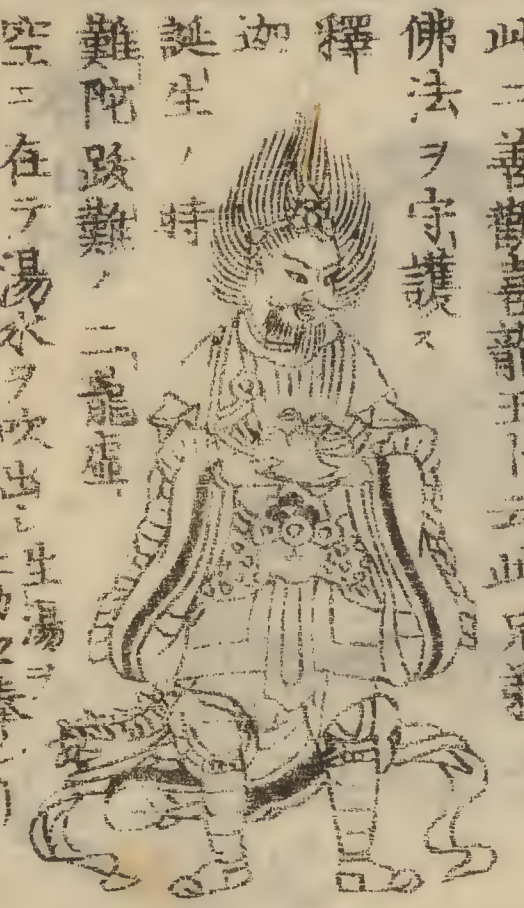 此ニ善歡喜王ト云此
佛法ヲ守護ス
釋
迦
誕生ノ時
難陀跋難ノ二龍虚
空ニ在テ湯水ヲ吹出シ生湯ヲ